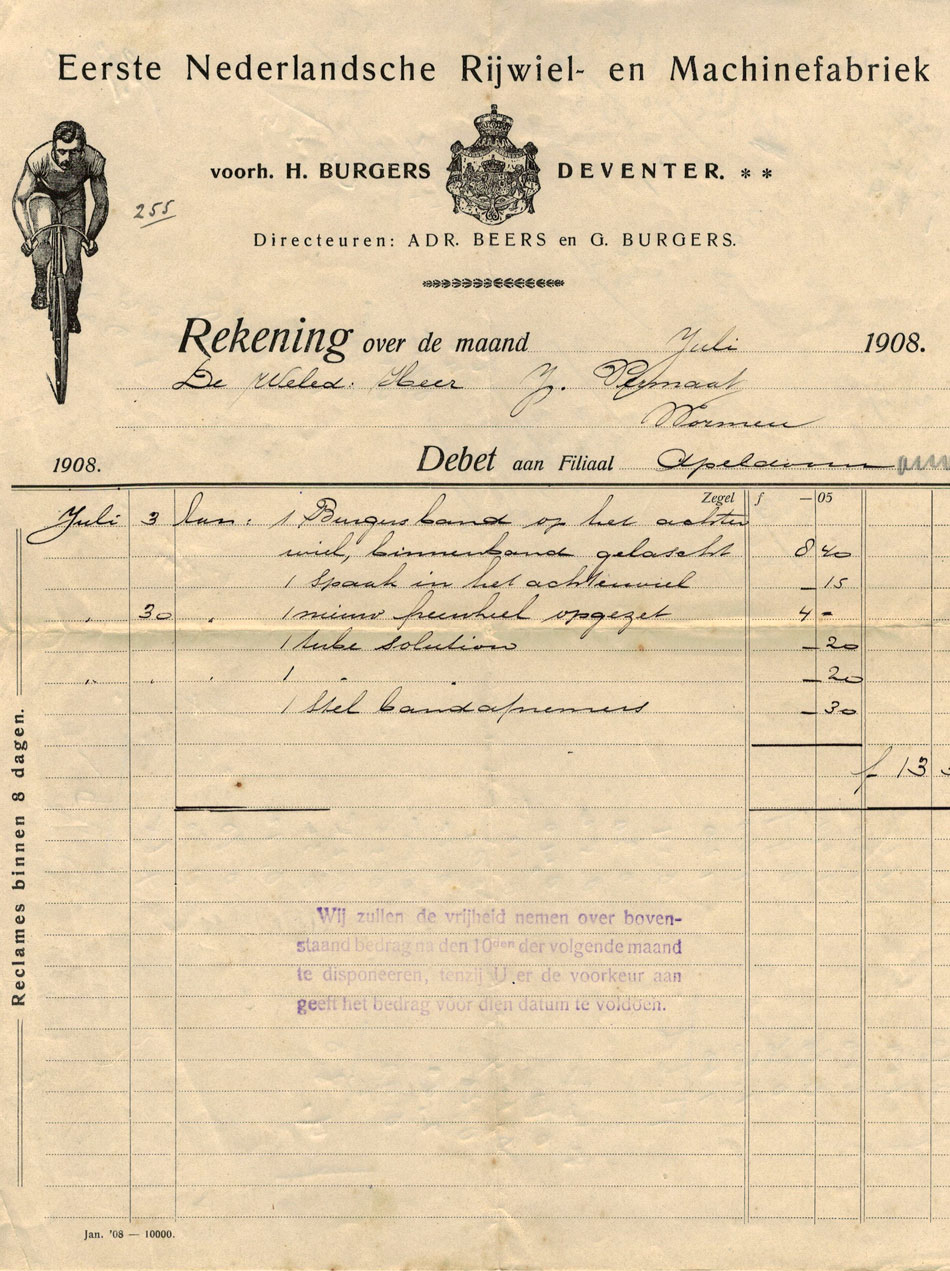 Eerste Nederlandsche Rijwiel- en Machinefabriek
voorh. H. BURGERS DEVENTER. * *
255
Directeuren: ADR. BEERS en G. BURGERS.
Rekening over de maand Juli 1908.
De Weled: Heer J. Vermaat
Wormen
1908. Debet aan Filiaal Apeldoorn
Zegel f — 05
Juli 3 Aan: 1 Burgersband op het achter
wiel, binnenband gelascht 8 40
1 Spaak in het achterwiel — 15
" 30 " 1 nieuw freewheel opgezet 4 -
1 tube solution — 20
" " " 1 " " — 20
1 Stel bandafnemers — 30
f 13 3
Reclames binnen 8 dagen.
Wij zullen de vrijheid nemen over boven-
staand bedrag na den 10den der volgende maand
te disponeeren, tenzij U er de voorkeur aan
geeft het bedrag vóór dien datum te voldoen.
Jan. '08 — 10000.